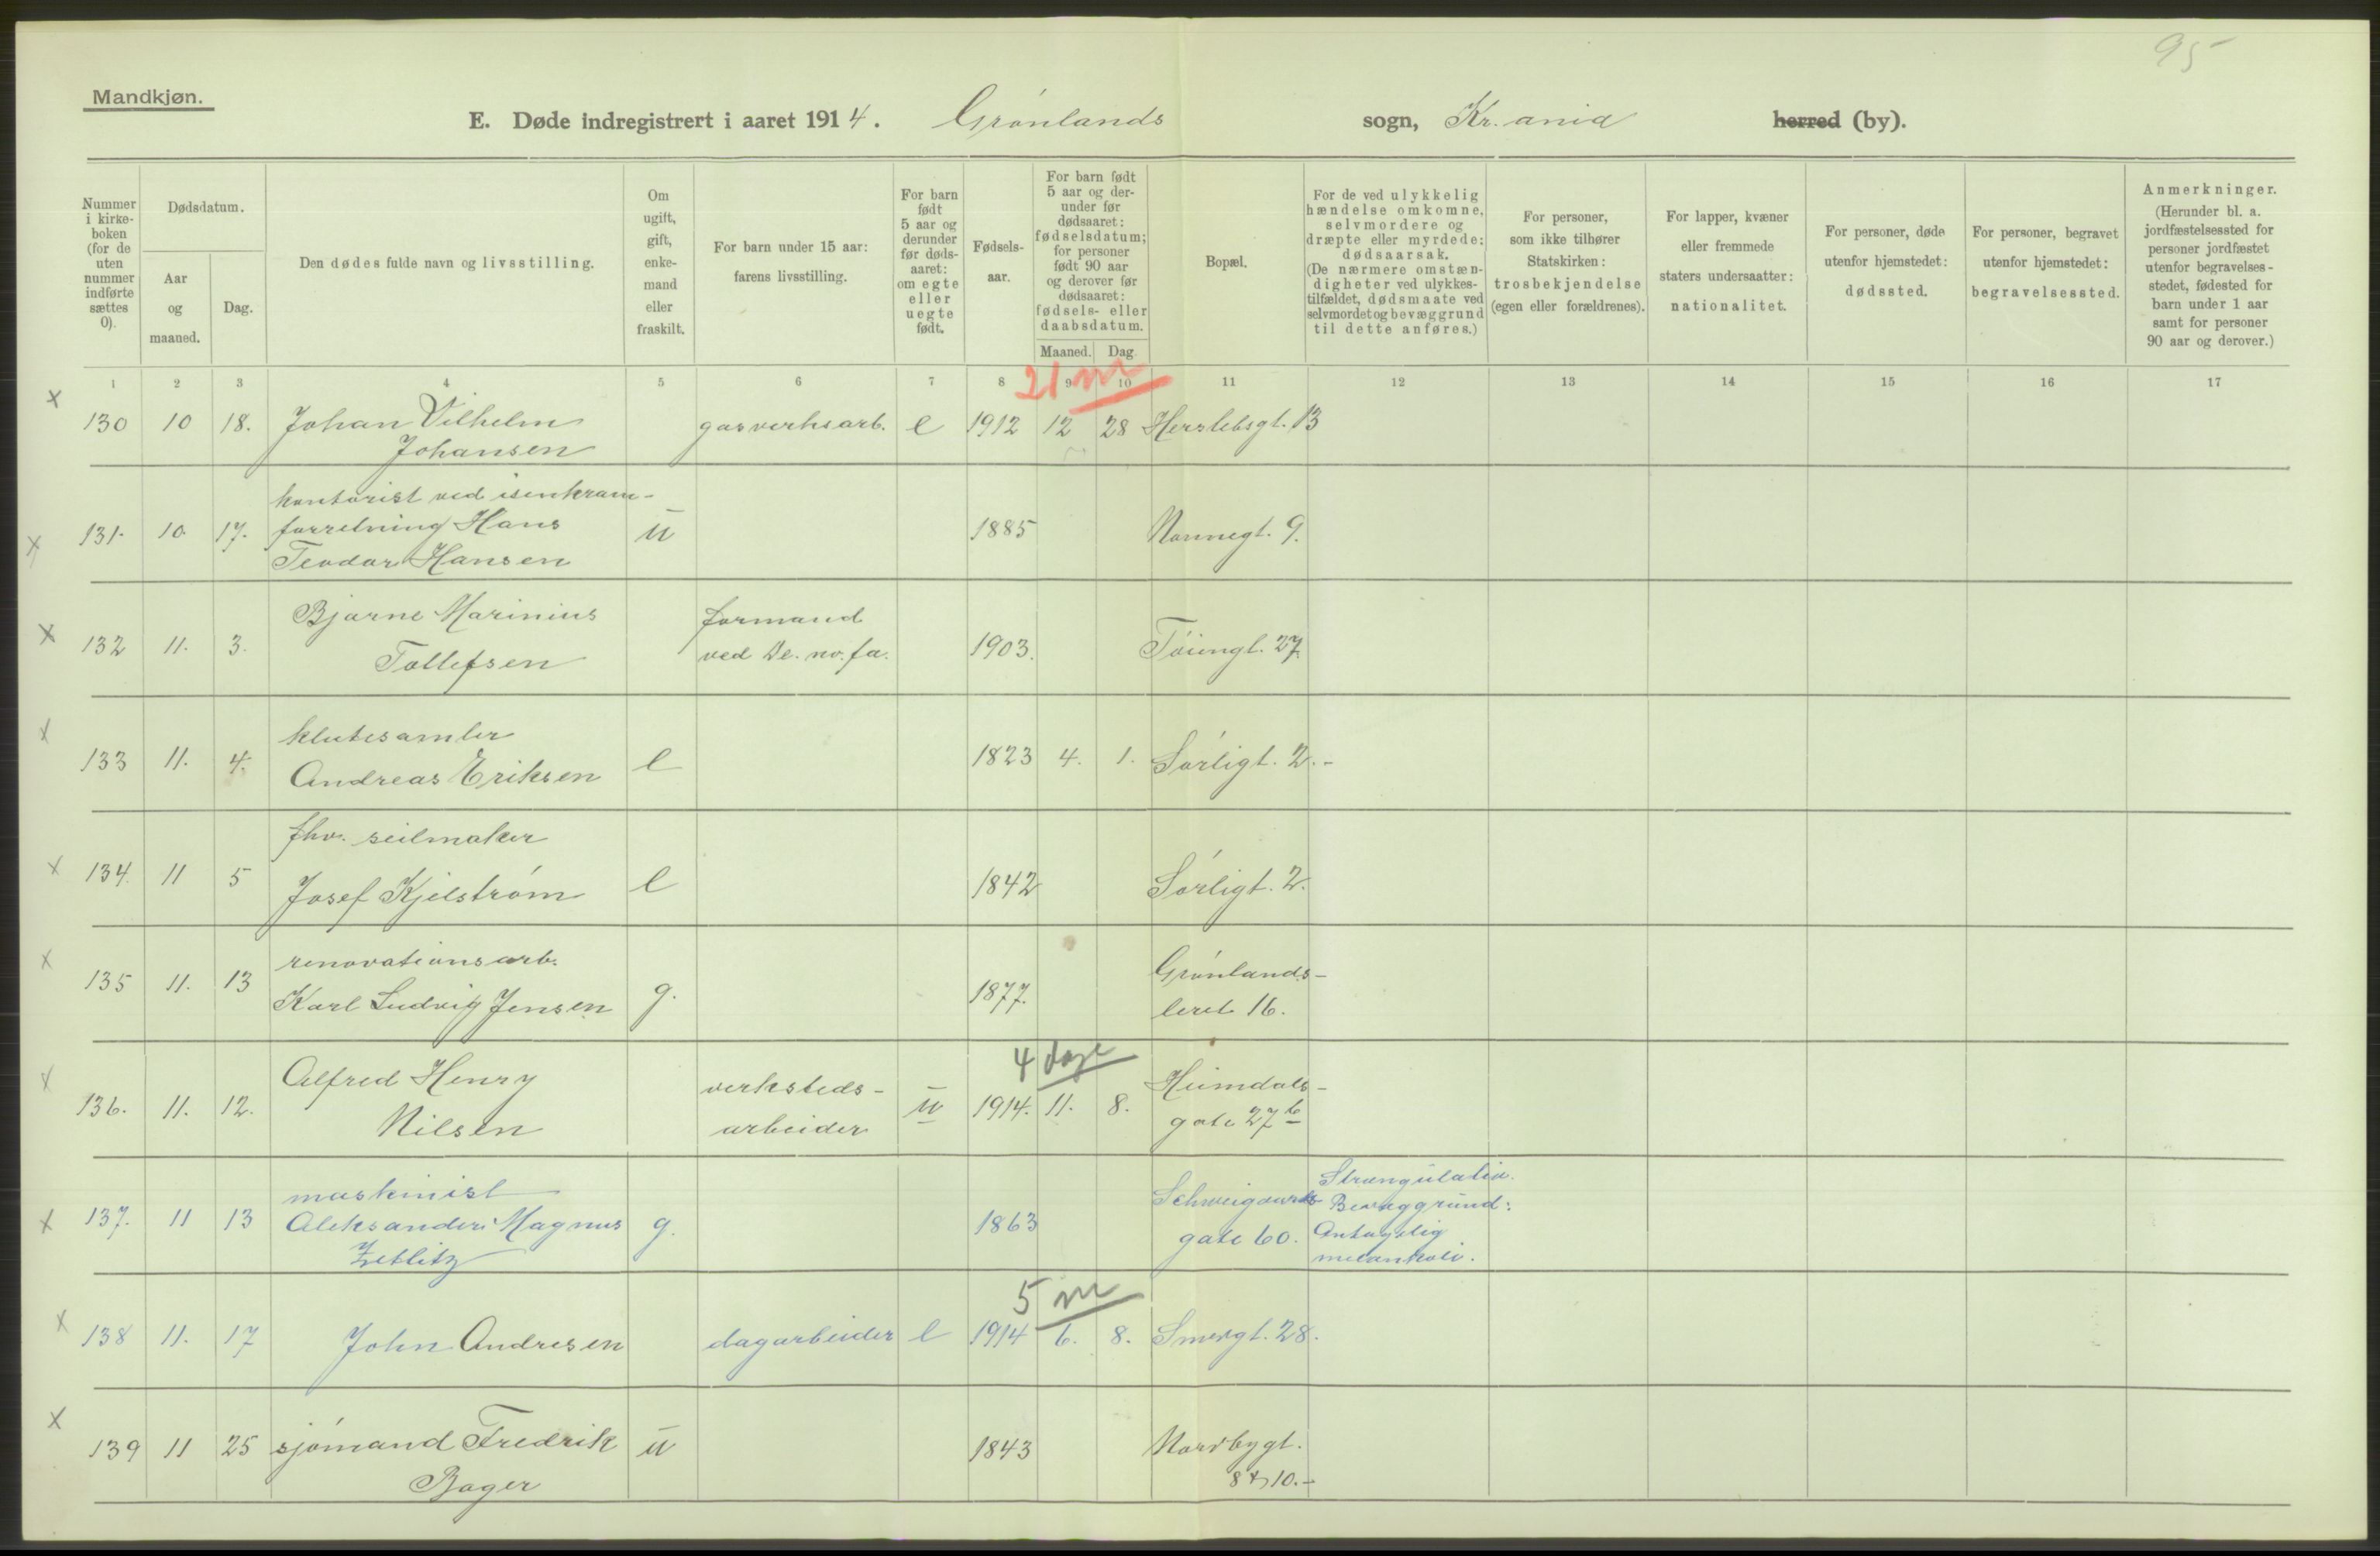 95
Mandkjøn.
E. Døde indregistrert i aaret 1914. Grønlands sogn, Kr.ania herred (by).
Nummer i kirke-boken (for de uten nummer indførte sættes 0).
Dødsdatum.
Aar og maaned.
Dag.
Den dødes fulde navn og livsstilling.
Om ugift, gift, enke-mand eller fraskilt.
For barn under 15 aar: farens livsstilling.
For barn født 5 aar og derunder før døds-aaret: om egte eller uegte født.
Fødsels-aar.
For barn født 5 aar og der-under før dødsaaret: fødselsdatum; for personer født 90 aar og derover før dødsaaret: fødsels- eller daabsdatum.
Maaned. Dag
Bopæl.
For de ved ulykkelig hændelse omkomne, selvmordere og dræpte eller myrdede: dødsaarsak. (De nærmere omstæn-digheter ved ulykkes-tilfældet, dødsmaate ved selvmordet og bevæggrund til dette anføres.)
For personer, som ikke tilhører Statskirken: trosbekjendelse (egen eller forældrenes).
For lapper, kvæner eller fremmede staters undersaatter: nationalitet.
For personer, døde utenfor hjemstedet: dødssted.
For personer, begravet utenfor hjemstedet: begravelsessted.
Anmerkninger. (Herunder bl. a. jordfæstelsessted for personer jordfæstet utenfor begravelses-stedet, fødested for barn under 1 aar samt for personer 90 aar og derover.)
1 2 3 4 5 6 7 8 9 10 11 12 13 14 15 16 17
21 m
x 130 10 18. Johan Vilhelm gasverksarb. e 1912 12 28 Herslebsgt. 13
Johansen
kontorist ved isenkram-
x 131. 10. 17. forretning Hans u 1885 Nonnegt. 9.
Teodor Hansen
Bjarne Marinius formand
x 132 11. 3. Tollefsen ved De. no. fa. 1903. Tøiengt. 27.
klutesamler
x 133 11. 4. Andreas Eriksen e 1823 4. 1. Sørligt. 2.-
fhv. seilmaker
x 134. 11 5 Josef Kjelstrøm e 1842 Sørligt. 2.
renovationsarb. Grønlands-
x 135 11. 13 Karl Ludvig Jensen g. 1877. leret 16.
4 dage
Alfred Henry verksteds- Heimdals-
x 136. 11. 12. Nilsen arbeider u 1914. 11. 8. gate 27 b
maskinist Schweigaards- Strangulatio.
x 137. 11 13 Aleksander Magnus g. 1863 gate 60. Bevæggrund:
Zetlitz Antagelig
melankoli.
5 m
x 138 11. 17 John Andresen dagarbeider e 1914 6. 8. Smedgt. 28.
x 139 11 25 sjømand Fredrik u 1843 Nordbygt.
Bager 8 & 10.-